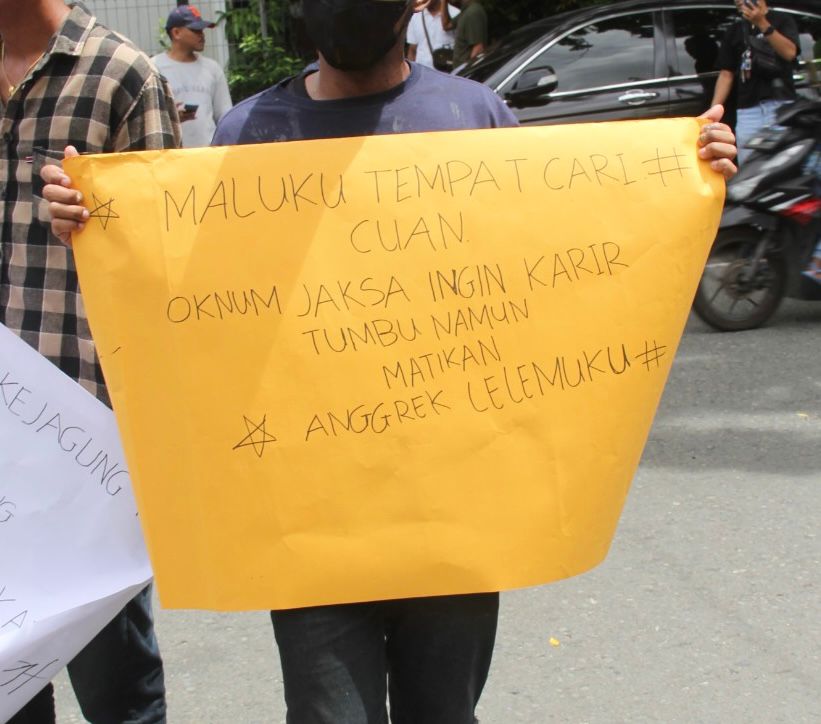 ☆ MALUKU TEMPAT CARI #
CUAN.
OKNUM JAKSA INGIN KARIR
TUMBU NAMUN
MATIKAN
☆ ANGGREK LELEMUKU #
KEJAGUNG